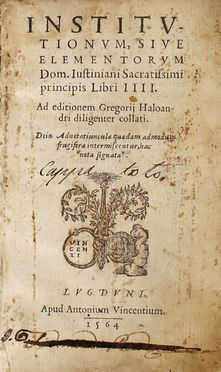 INSTITV-
TIONVM, SIVE
ELEMENTORVM
Dom. Iustiniani Sacratissimi
principis Libri IIII.
Ad editionem Gregorij Haloan-
dri diligenter collati.
Dein Adnotatiunculæ quædam admodum
frugiferæ intermiscentur, hac
nota signatæ*
VIN
CEN
TI
LVGDVNI,
Apud Antonium Vincentium.
1564